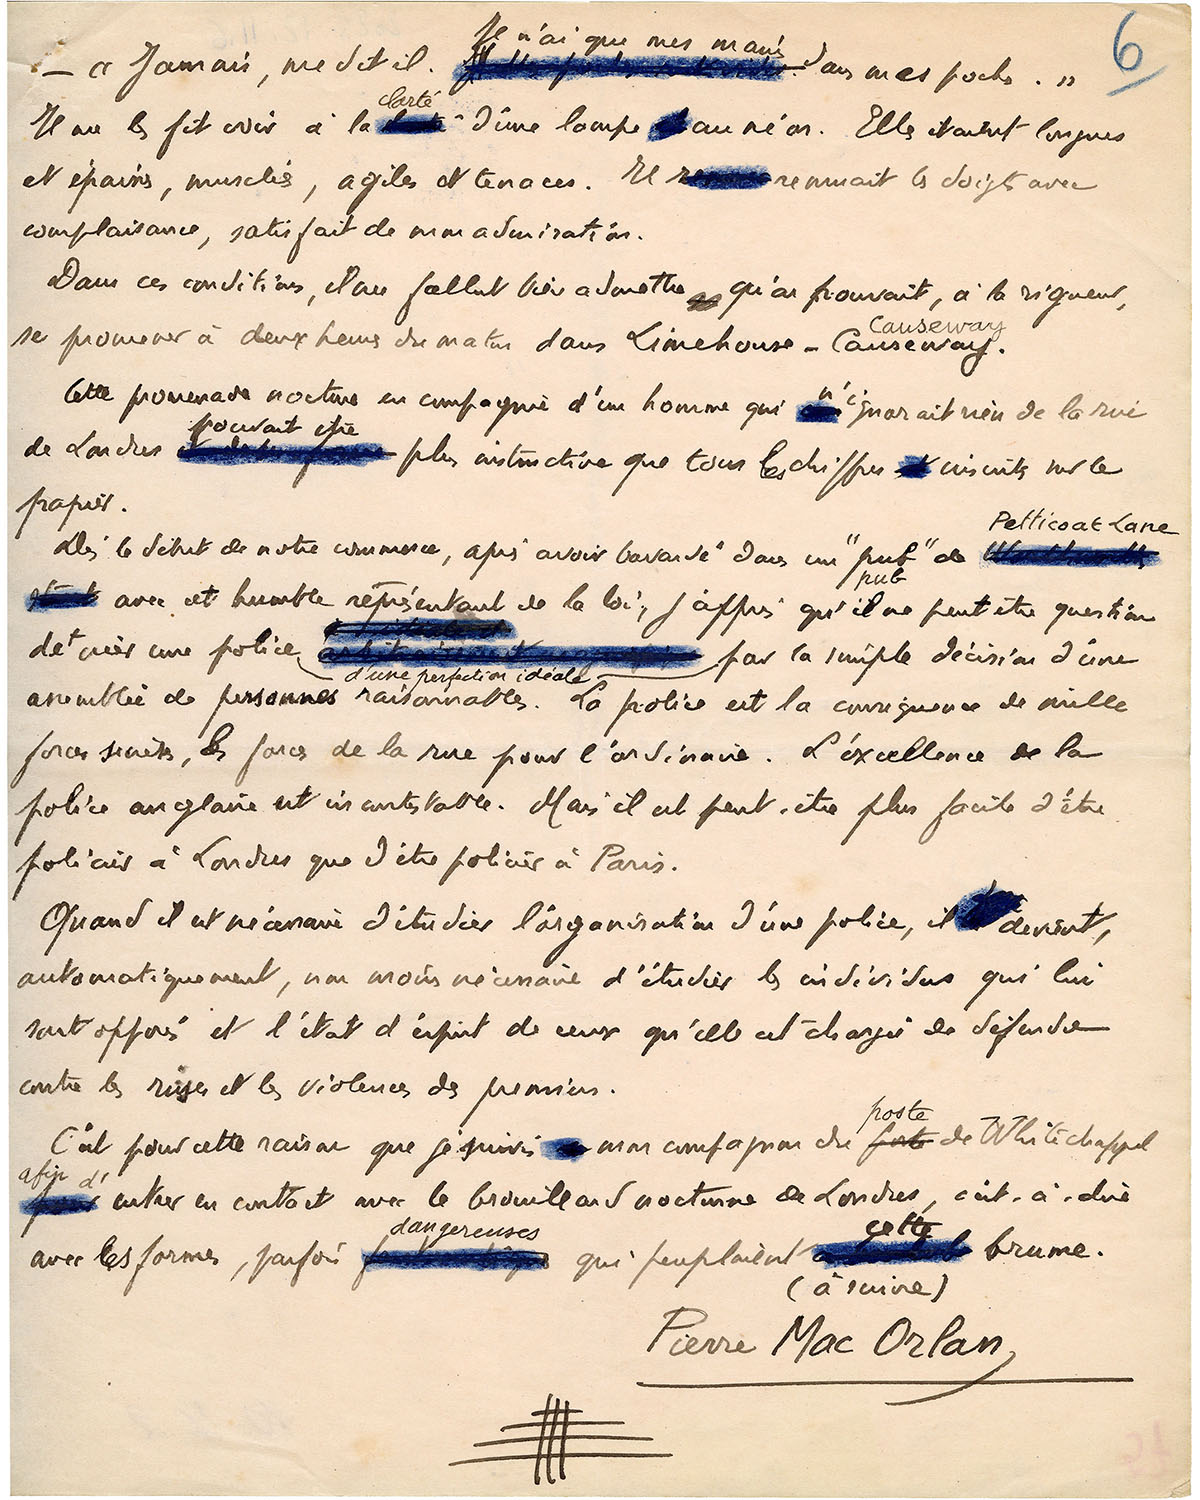 6
Je n'ai que mes mains
— « Jamais, me dit il. dans mes poches. »
clarté
Il me les fit voir à la d'une lampe au néon. Elles étaient longues
et épaisses, musclées, agiles et tenaces. Il remuait les doigts avec
complaisance, satisfait de mon admiration.
Dans ces conditions, il me fallut bien admettre qu'on pouvait, à la rigueur,
Causeway
se promener à deux heures du matin dans Limehouse - Causeway.
Cette promenade nocturne en compagnie d'un homme qui n'ignorait rien de la rue
pouvait être
de Londres plus instructive que tous les chiffres inscrits sur le
papier.
Petticoat Lane
Dès le début de notre commerce, après avoir bavardé dans un "pub" de
pub
avec cet humble représentant de la loi, j'appris qu'il ne peut être question
de créer une police par la simple décision d'une
d'une perfection idéale
assemblée de personnes raisonnables. La police est la conséquence de mille
forces secrètes, les forces de la rue pour l'ordinaire. L'excellence de la
police anglaise est incontestable. Mais il est peut-être plus facile d'être
policier à Londres que d'être policier à Paris.
Quand il est nécessaire d'étudier l'organisation d'une police, il devient,
automatiquement, non moins nécessaire d'étudier les individus qui lui
sont opposés et l'état d'esprit de ceux qu'elle est chargée de défendre
contre les ruses et les violences des premiers.
poste
C'est pour cette raison que je suivis mon compagnon du de Whitechappel
afin d'
entrer en contact avec le brouillard nocturne de Londres, c'est-à-dire
dangereuses cette
avec les formes, parfois qui peuplaient brume.
(à suivre)
Pierre Mac Orlan